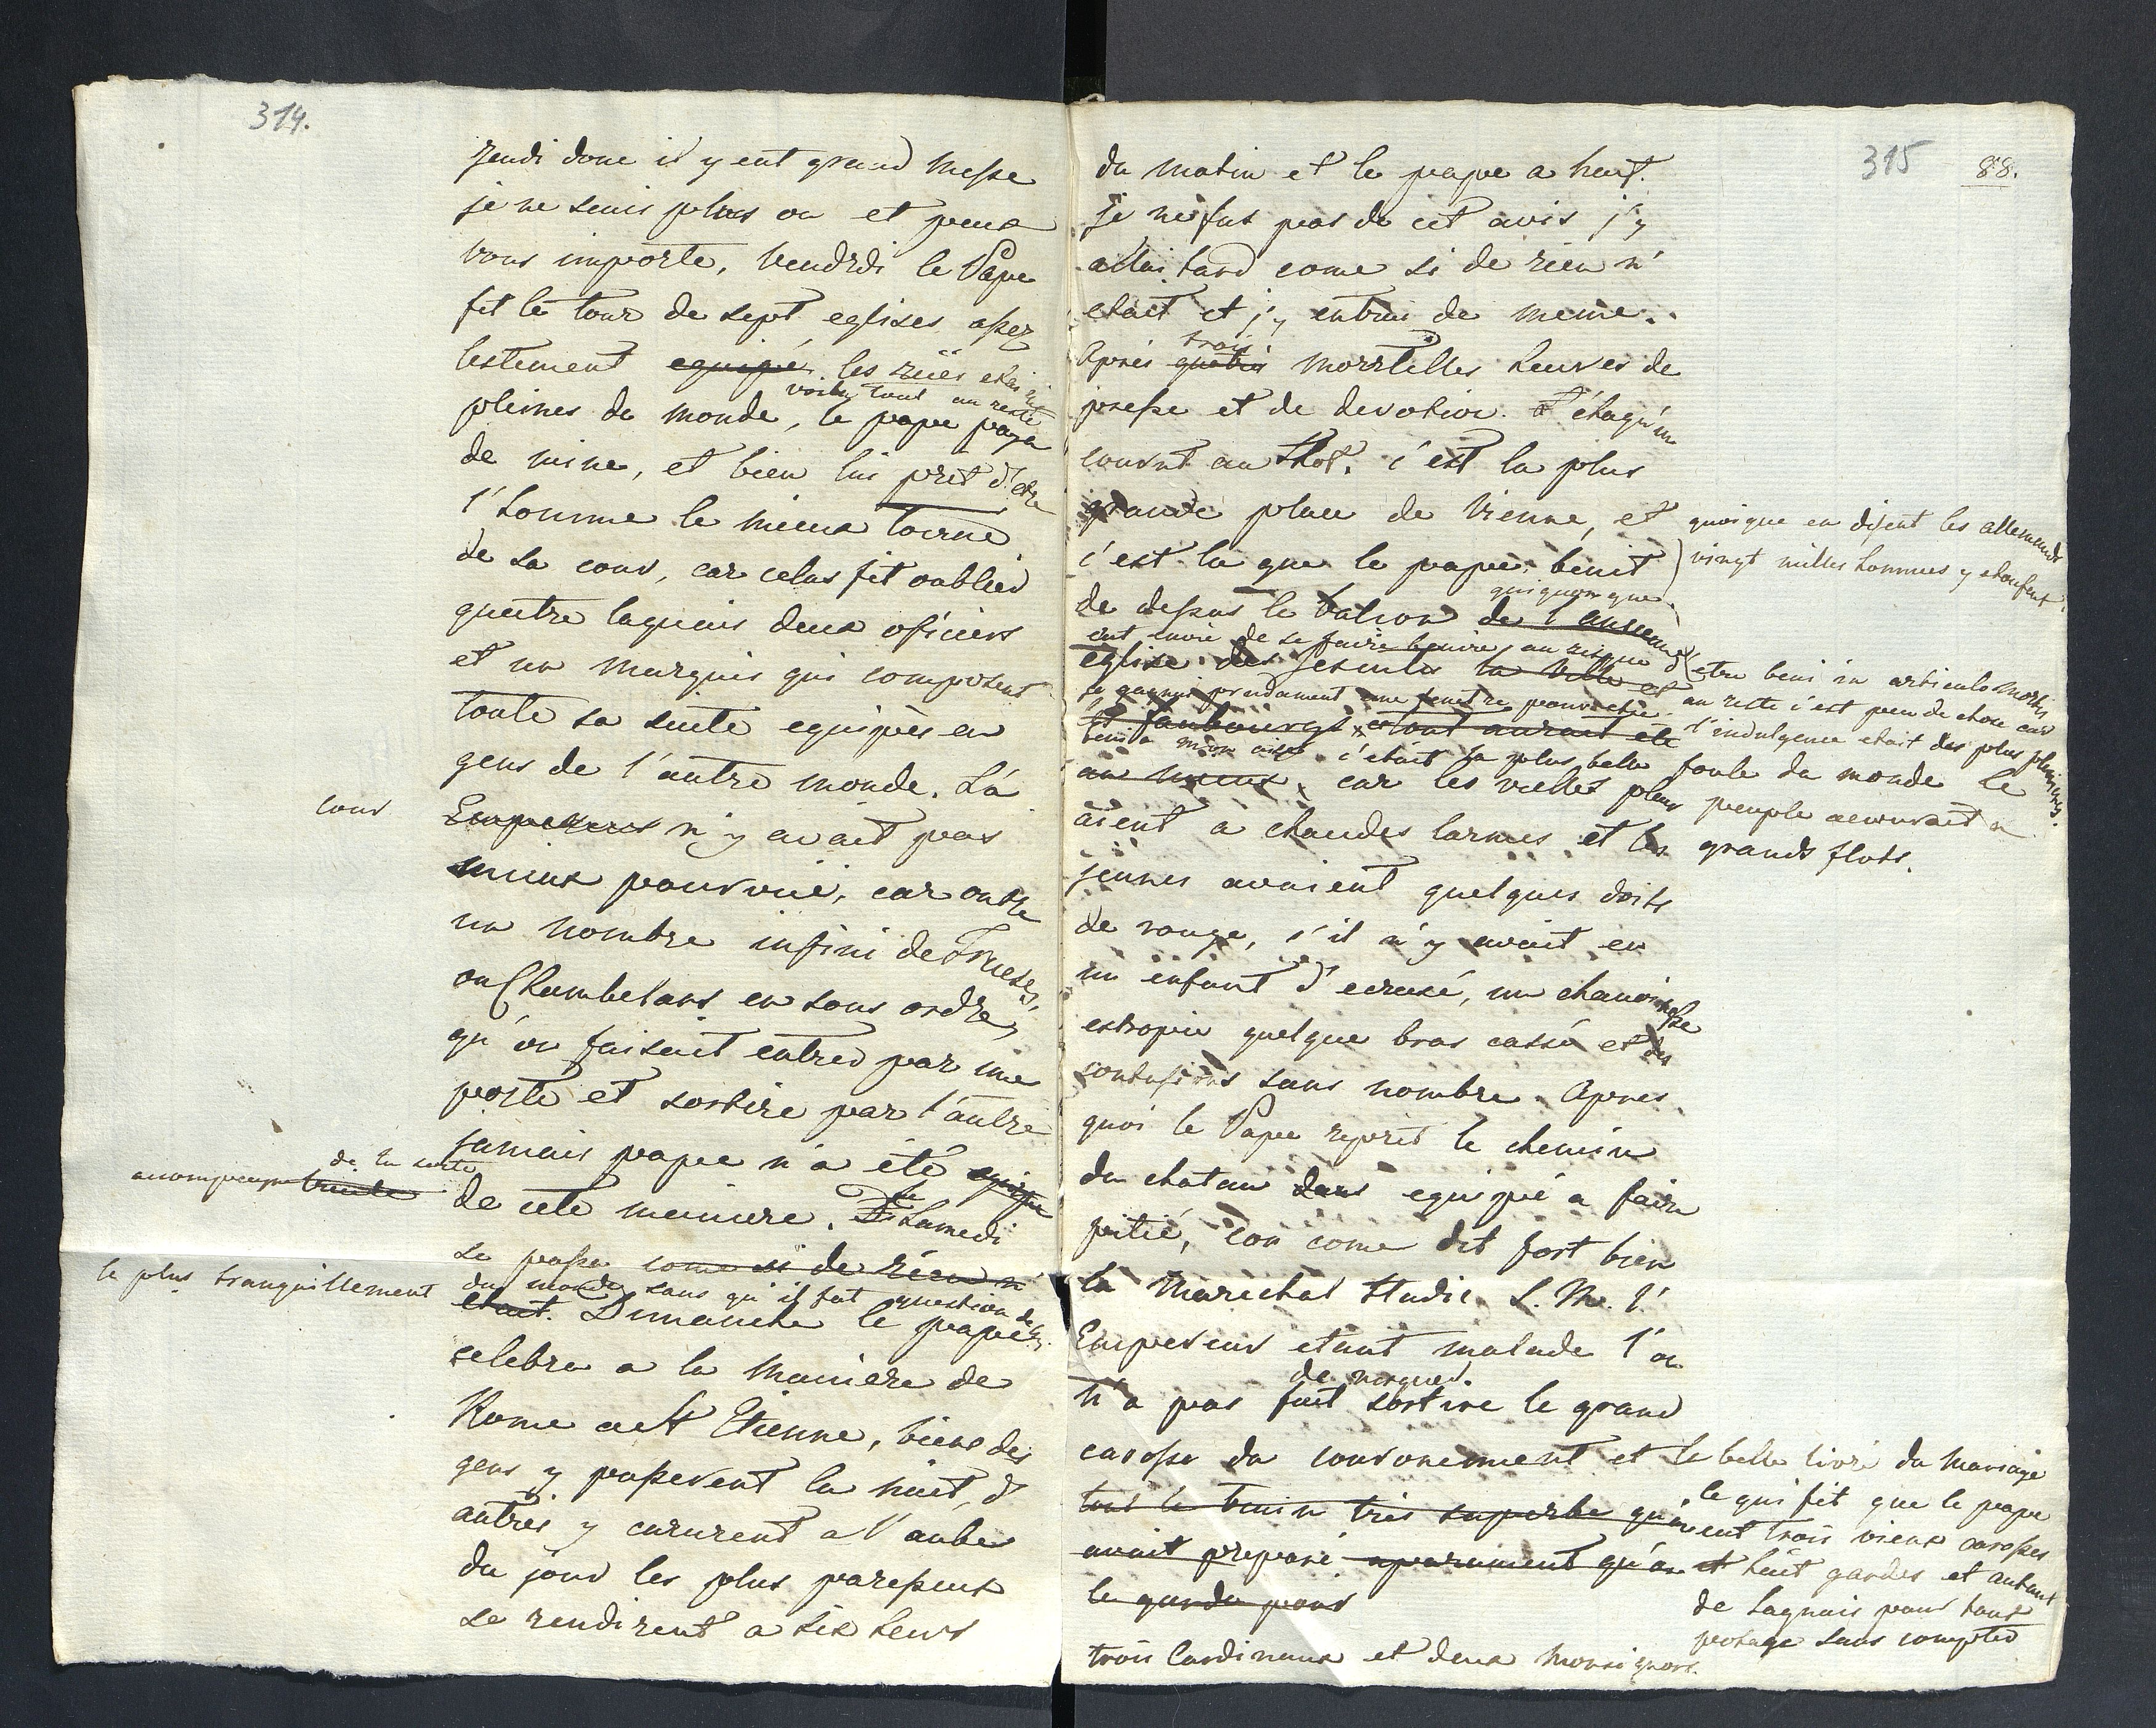 314.
jeudi donc il y eut grand messe
je ne suis plus ou et peut
vous importe, Vendrdi le Pape
fit le tour de sept eglises assez
lestement equipé les rües etaient
voila tout au reste
pleines de monde, le pape paya
de mine, et bien lui prit d'etre
l'homme le mieux tourné
de sa cour, car celas fit oublier
quatre laquais deux oficiers
et un marquis qui composent
toute sa suite equipés en
gens de l'autre monde. La
cour
Empereur n'y avait pas
mieux pourvuë, car outre
un nombre infini de
ou Chambelans en sous ordre,
qu'on faisait entrer par une
porte et sortire par l'autre
jamais pape n'a eté equipé
de la sorte
acompagné
de cete maniere. Le Samedi
se passa come si de rien n'
le plus tranquillement
du monde sans qu'il fut question de
etait. Dimanche le pape
celebra a la maniere de
Rome a St Etienne, biens des
gens y passerent la nuit, d'
autres y cururent a l'aube
du jour les plus paresseux
se rendirent a six heurs
315 88.
du matin et le pape a huit.
je ne fus pas de cet avis j'y
allai tard come si de rien n'
etait et j'y entrai de meme.
trois
Aprés quatres morrtelles heures de
presse et de devotion.
courut au Hof, c'est la plus
grande place de Vienne, et
quoique en disent les allemands
vingt milles hommes y etoufent.
c'est la que le pape benit
de dessus le balcon de l'ancienne
quiquonque
eut envie de se faire benire, au risque d'
etre beni in articulo mortis
eglise des Jesuites la ville et
je gagnai prudament une fenetre pour etre
au reste c'est peu de chose car
l'indulgence etait des plus plenieres.
et faubourgs et tout aurait eté
beni a mon aise. c'etait la plus belle foule du monde le
peuple acourait a
grands flots.
au mieux, car les vielles pleur
aient a chaudes larmes et les
jeunes avaient quelques doits
de rouge, s'il n'y avait eu
un enfant d'ecrasé, un chanoinesse
estropié quelque bras cassé et des
contusions sans nombre. Apres
quoi le Pape reprit le chemin
du chateau dans equipé a faire
pitié, car come dit fort bien
la Marechal Hadic S. M. l'
Empereur etant malade l'on
de
n'a pas fait sortire le grand
carosse du couronement et la belle livré du Mariage
tout le train tres superbe qu'on
ce qui fit que le pape
avait preparé aparament qu'on
eut trois vieux carosses
et huit gardes et autant
le garde pour
de laquais pour tout
potage sans compter
trois Cardinaux et deux Monsignors.